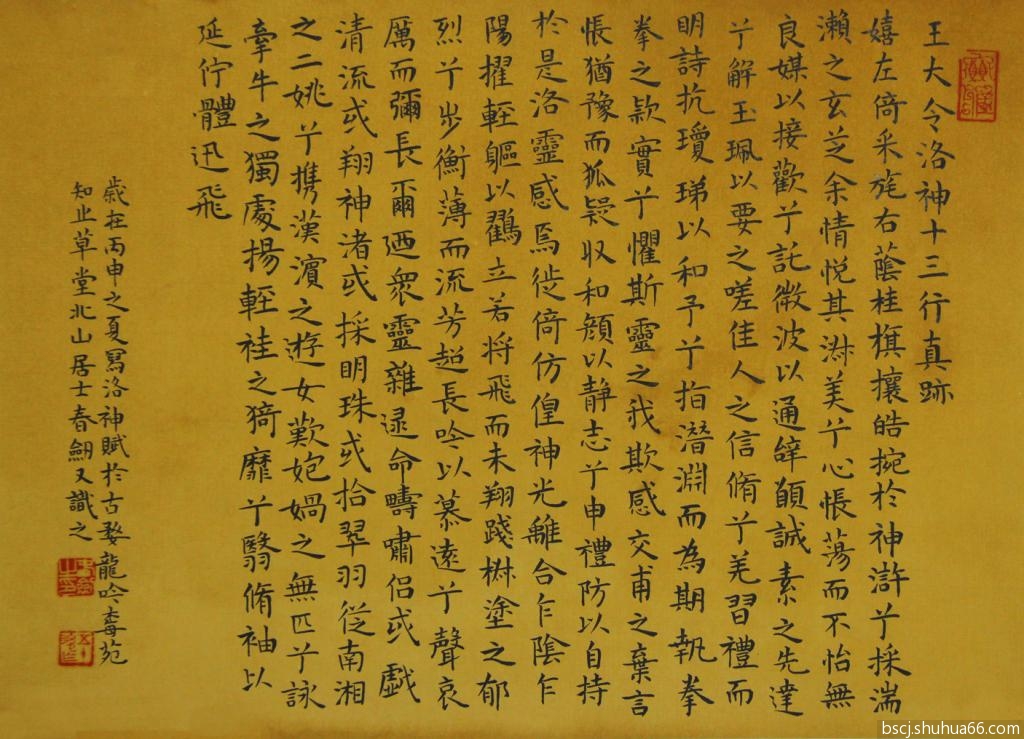 王大令洛神十三行真跡
嬉左倚采旄右蔭桂棋攘皓捥於神滸兮採湍
瀨之玄芝余情悅其淋美兮心悵蕩而不怡無
良媒以接歡兮託微波以通辝願誠素之先達
兮解玉珮以要之嗟佳人之信脩兮羌習禮而
明詩抗瓊珶以和予兮指潛淵而為期執拳
拳之款實兮懼斯靈之我欺感交甫之棄言
悵猶豫而狐疑収和顏以靜志兮申禮防以自持
於是洛靈感焉徙倚仿偟神光離合乍陰乍
陽擢輕軀以鸖立若將飛而未翔踐椒塗之郁
烈兮步衡薄而流芳超長吟以慕遠兮聲哀
厲而彌長爾迺衆靈雜逯命疇嘯侶或戲
清流或翔神渚或採明珠或拾翠羽從南湘
之二姚兮攜漢濱之遊女歎媲媧之無匹兮詠
牽牛之獨處揚輕袿之猗靡兮翳脩袖以
延佇體迅飛
歲在丙申之夏寫洛神賦於古婺龍吟壽苑
知止草堂北山居士春劒又識之
bscj.shuhua66.com